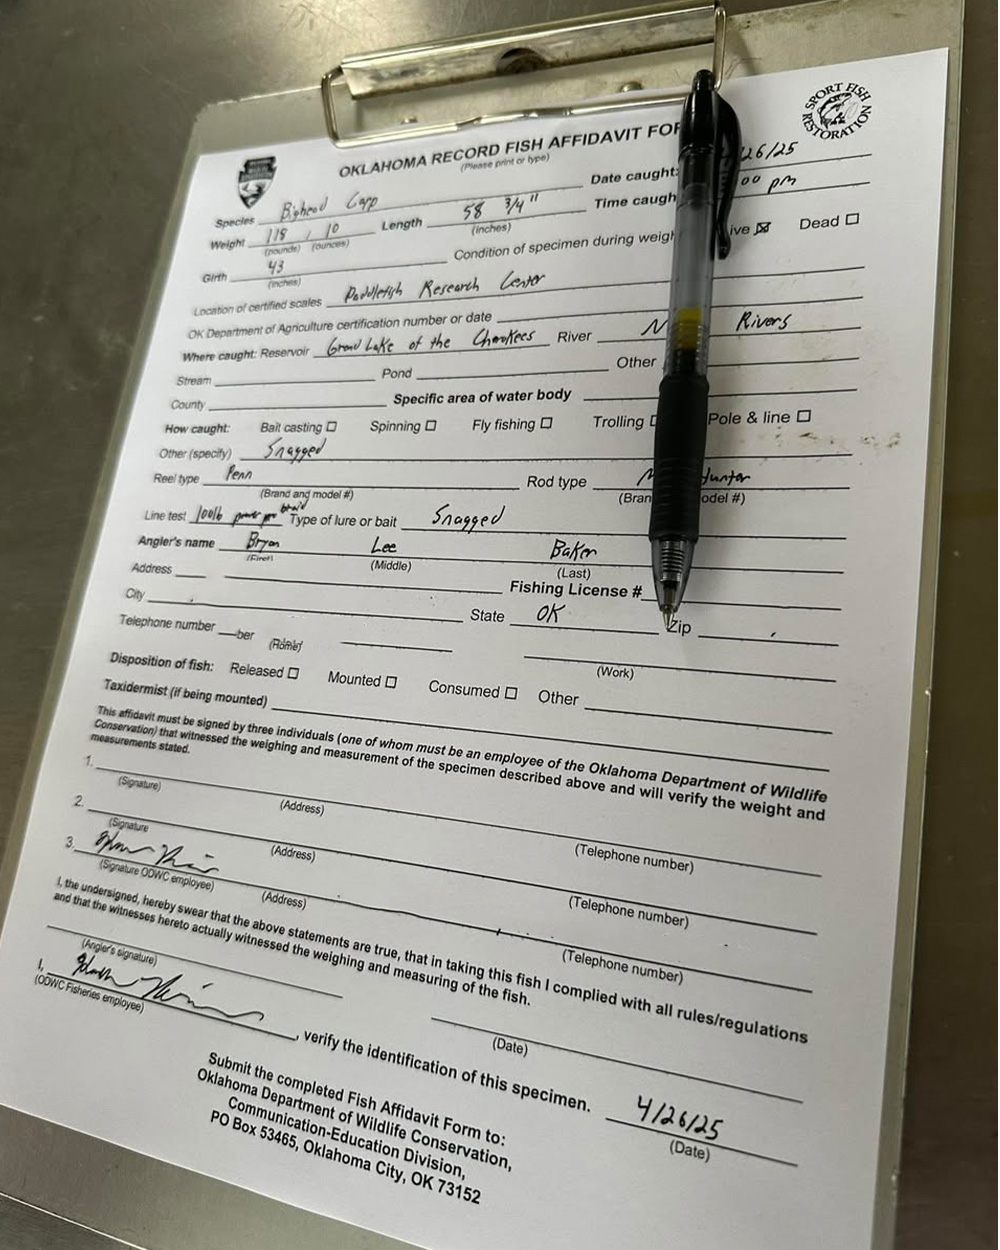 OKLAHOMA RECORD FISH AFFIDAVIT FOR
(Please print or type)
SPORT FISH RESTORATION
Species Bighead Carp Date caught: /26/25
Weight 118 , 10 Length 58 3/4" Time caugh 00 pm
(pounds) (ounces) (inches)
Girth 43 Condition of specimen during weigh ive ☒ Dead ☐
(inches)
Location of certified scales Paddlefish Research Center
OK Department of Agriculture certification number or date
Where caught: Reservoir Grand Lake of the Cherokees River N Rivers
Stream Pond Other
County Specific area of water body
How caught: Bait casting ☐ Spinning ☐ Fly fishing ☐ Trolling Pole & line ☐
Other (specify) Snagged
Reel type Penn Rod type M Hunter
(Brand and model #) (Bran odel #)
Line test 100lb power pro braid Type of lure or bait Snagged
Angler's name Bryan Lee Baker
(First) (Middle) (Last)
Address Fishing License #
City State OK Zip
Telephone number ber
(Home) (Work)
Disposition of fish: Released ☐ Mounted ☐ Consumed ☐ Other
Taxidermist (if being mounted)
This affidavit must be signed by three individuals (one of whom must be an employee of the Oklahoma Department of Wildlife
Conservation) that witnessed the weighing and measurement of the specimen described above and will verify the weight and
measurements stated.
1.
(Signature) (Address) (Telephone number)
2.
(Signature (Address) (Telephone number)
3.
(Signature ODWC employee) (Address) (Telephone number)
I, the undersigned, hereby swear that the above statements are true, that in taking this fish I complied with all rules/regulations
and that the witnesses hereto actually witnessed the weighing and measuring of the fish.
(Angler's signature) (Date)
I, , verify the identification of this specimen. 4/26/25
(ODWC Fisheries employee) (Date)
Submit the completed Fish Affidavit Form to:
Oklahoma Department of Wildlife Conservation,
Communication-Education Division,
PO Box 53465, Oklahoma City, OK 73152